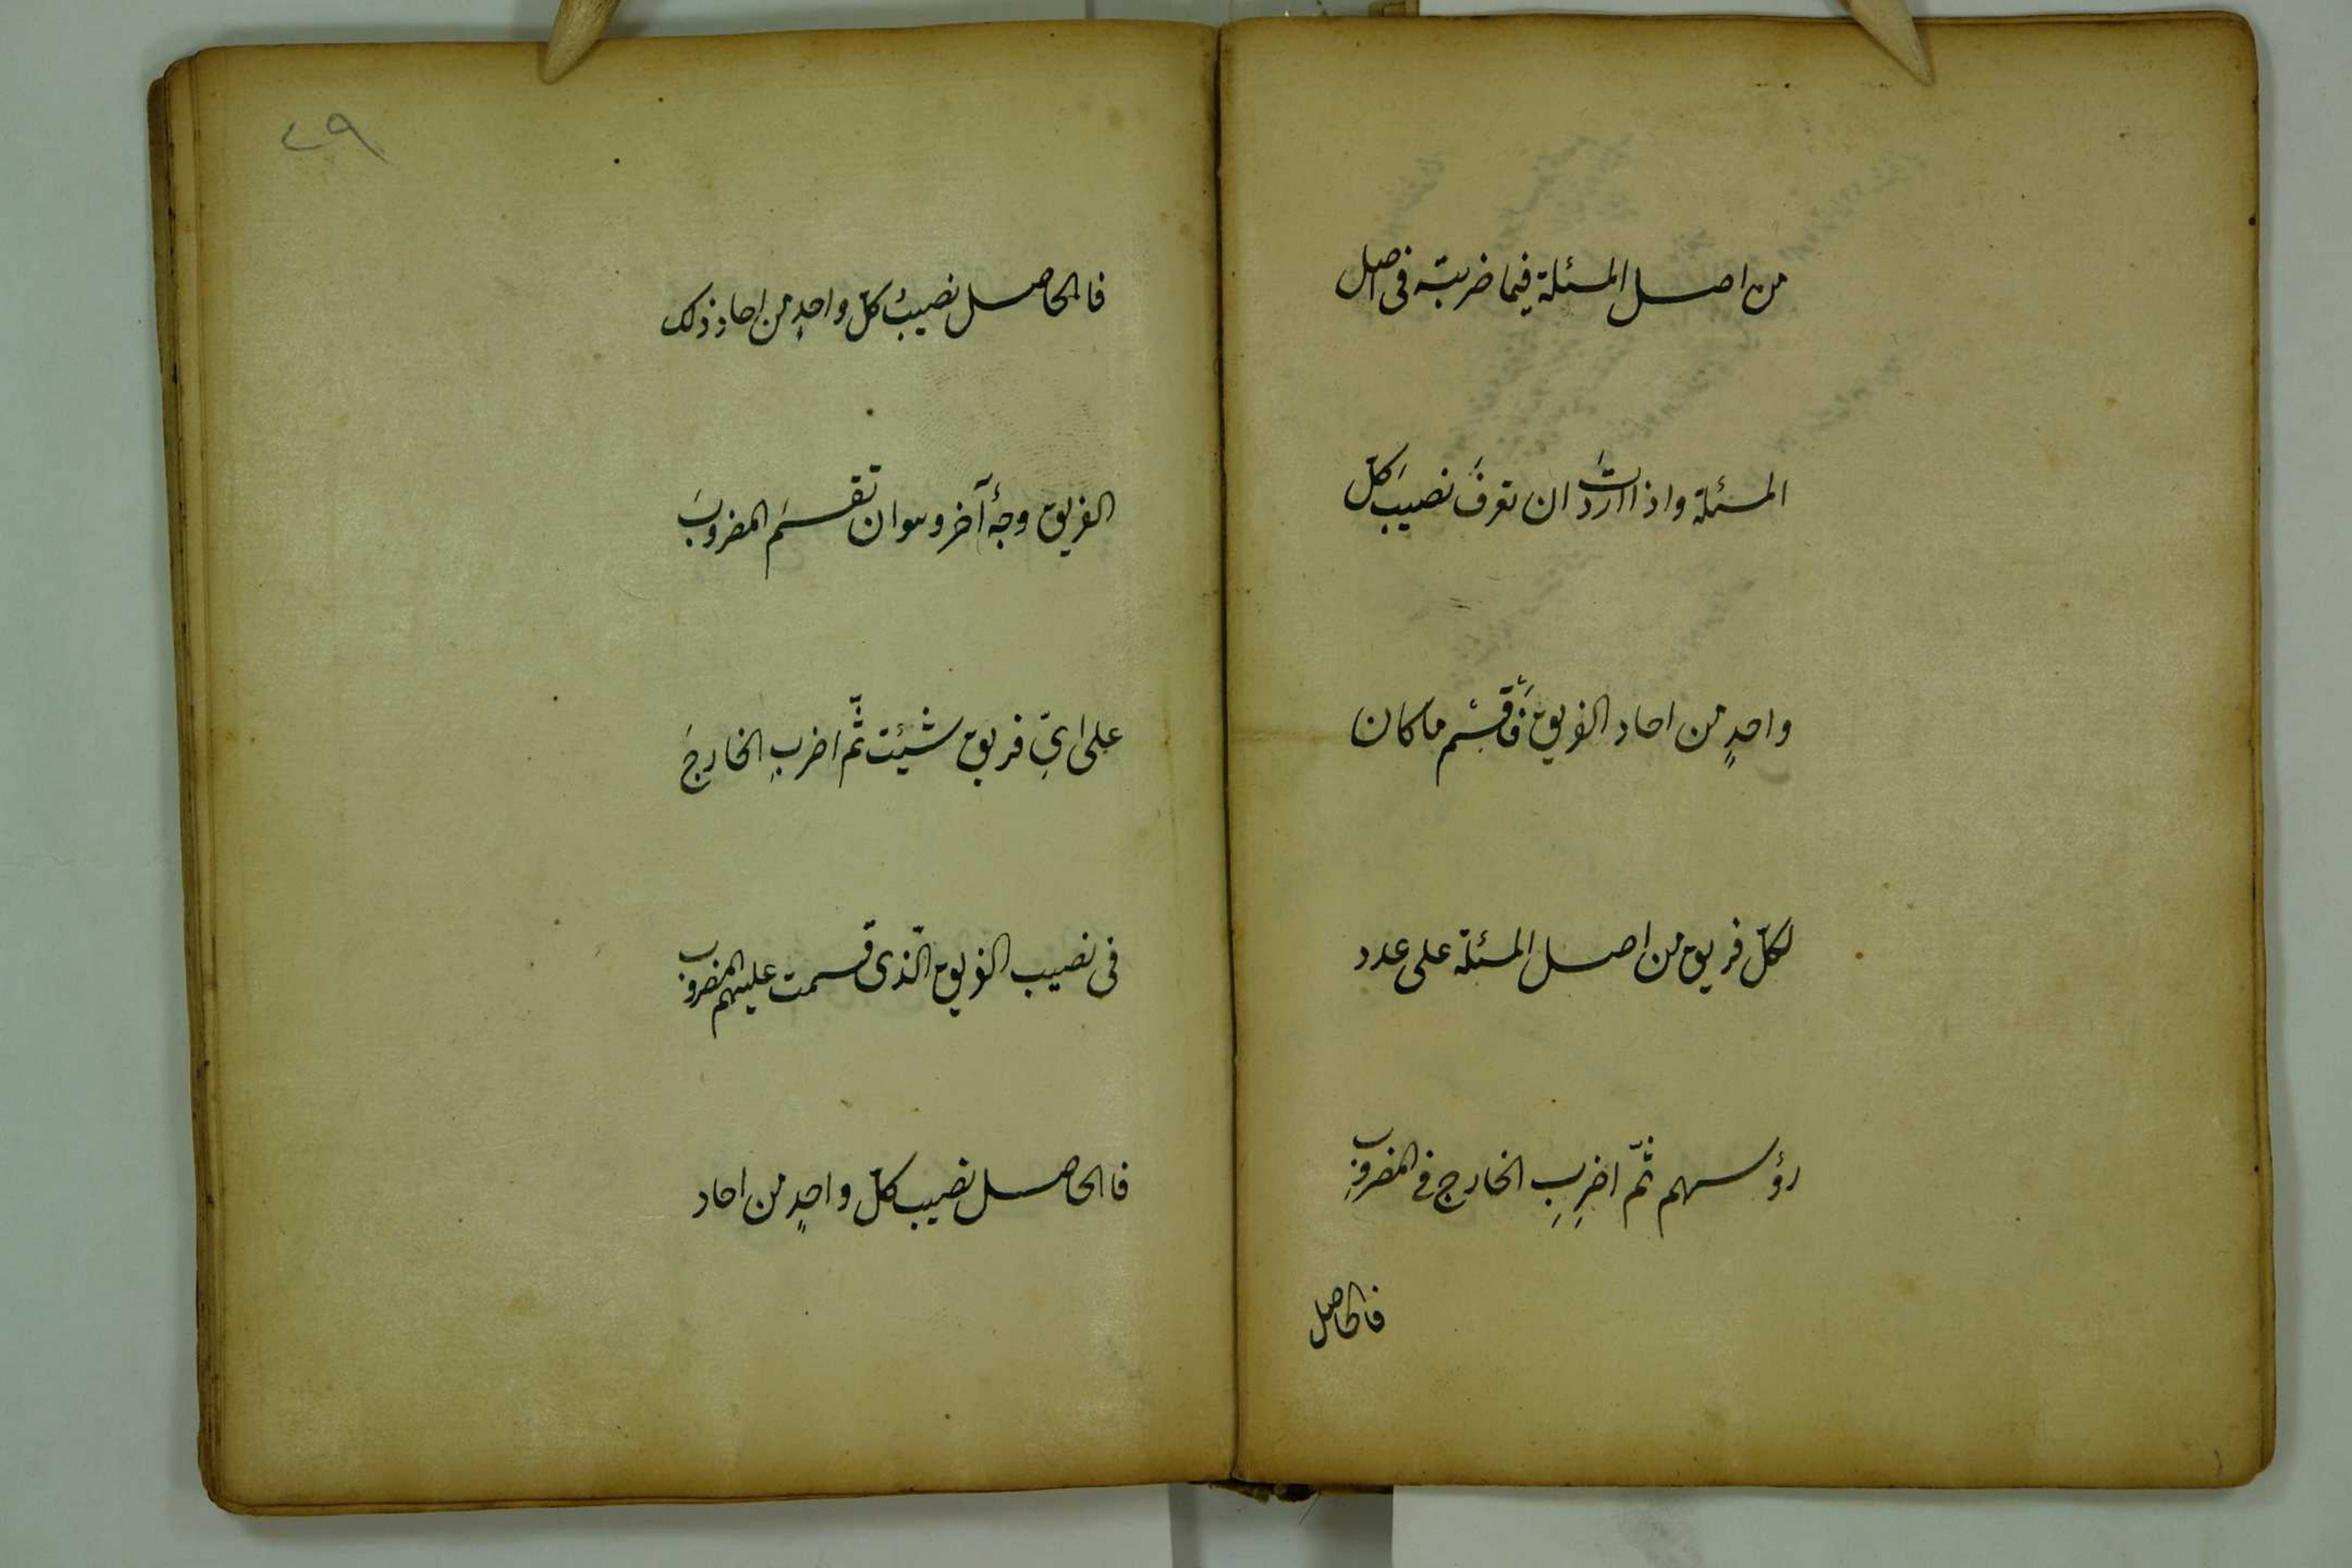 من اصل المسئلة فيما ضربته فى اصل
المسئلة واذا اردتَ ان تعرفَ نصيبَ كلّ
واحدٍ من احاد الفريق فَاَقْسِمْ ما كان
لكلّ فريق من اصل المسئلة على عدد
رؤسهم ثمّ اضرِبِ الخارج فى المضروبِ
فالحاصل
٤٩
فالحاصل نصيبُ كلّ واحدٍ من احاد ذلك
الفريق وجهٌ آخر وهو ان تقسمَ المضروبَ
على اىّ فريق شيئت ثمّ اضربِ الخارجَ
فى نصيب الفريق الّذى قسمت عليهم المضروب
فالحاصل نصيب كلّ واحدٍ من احاد